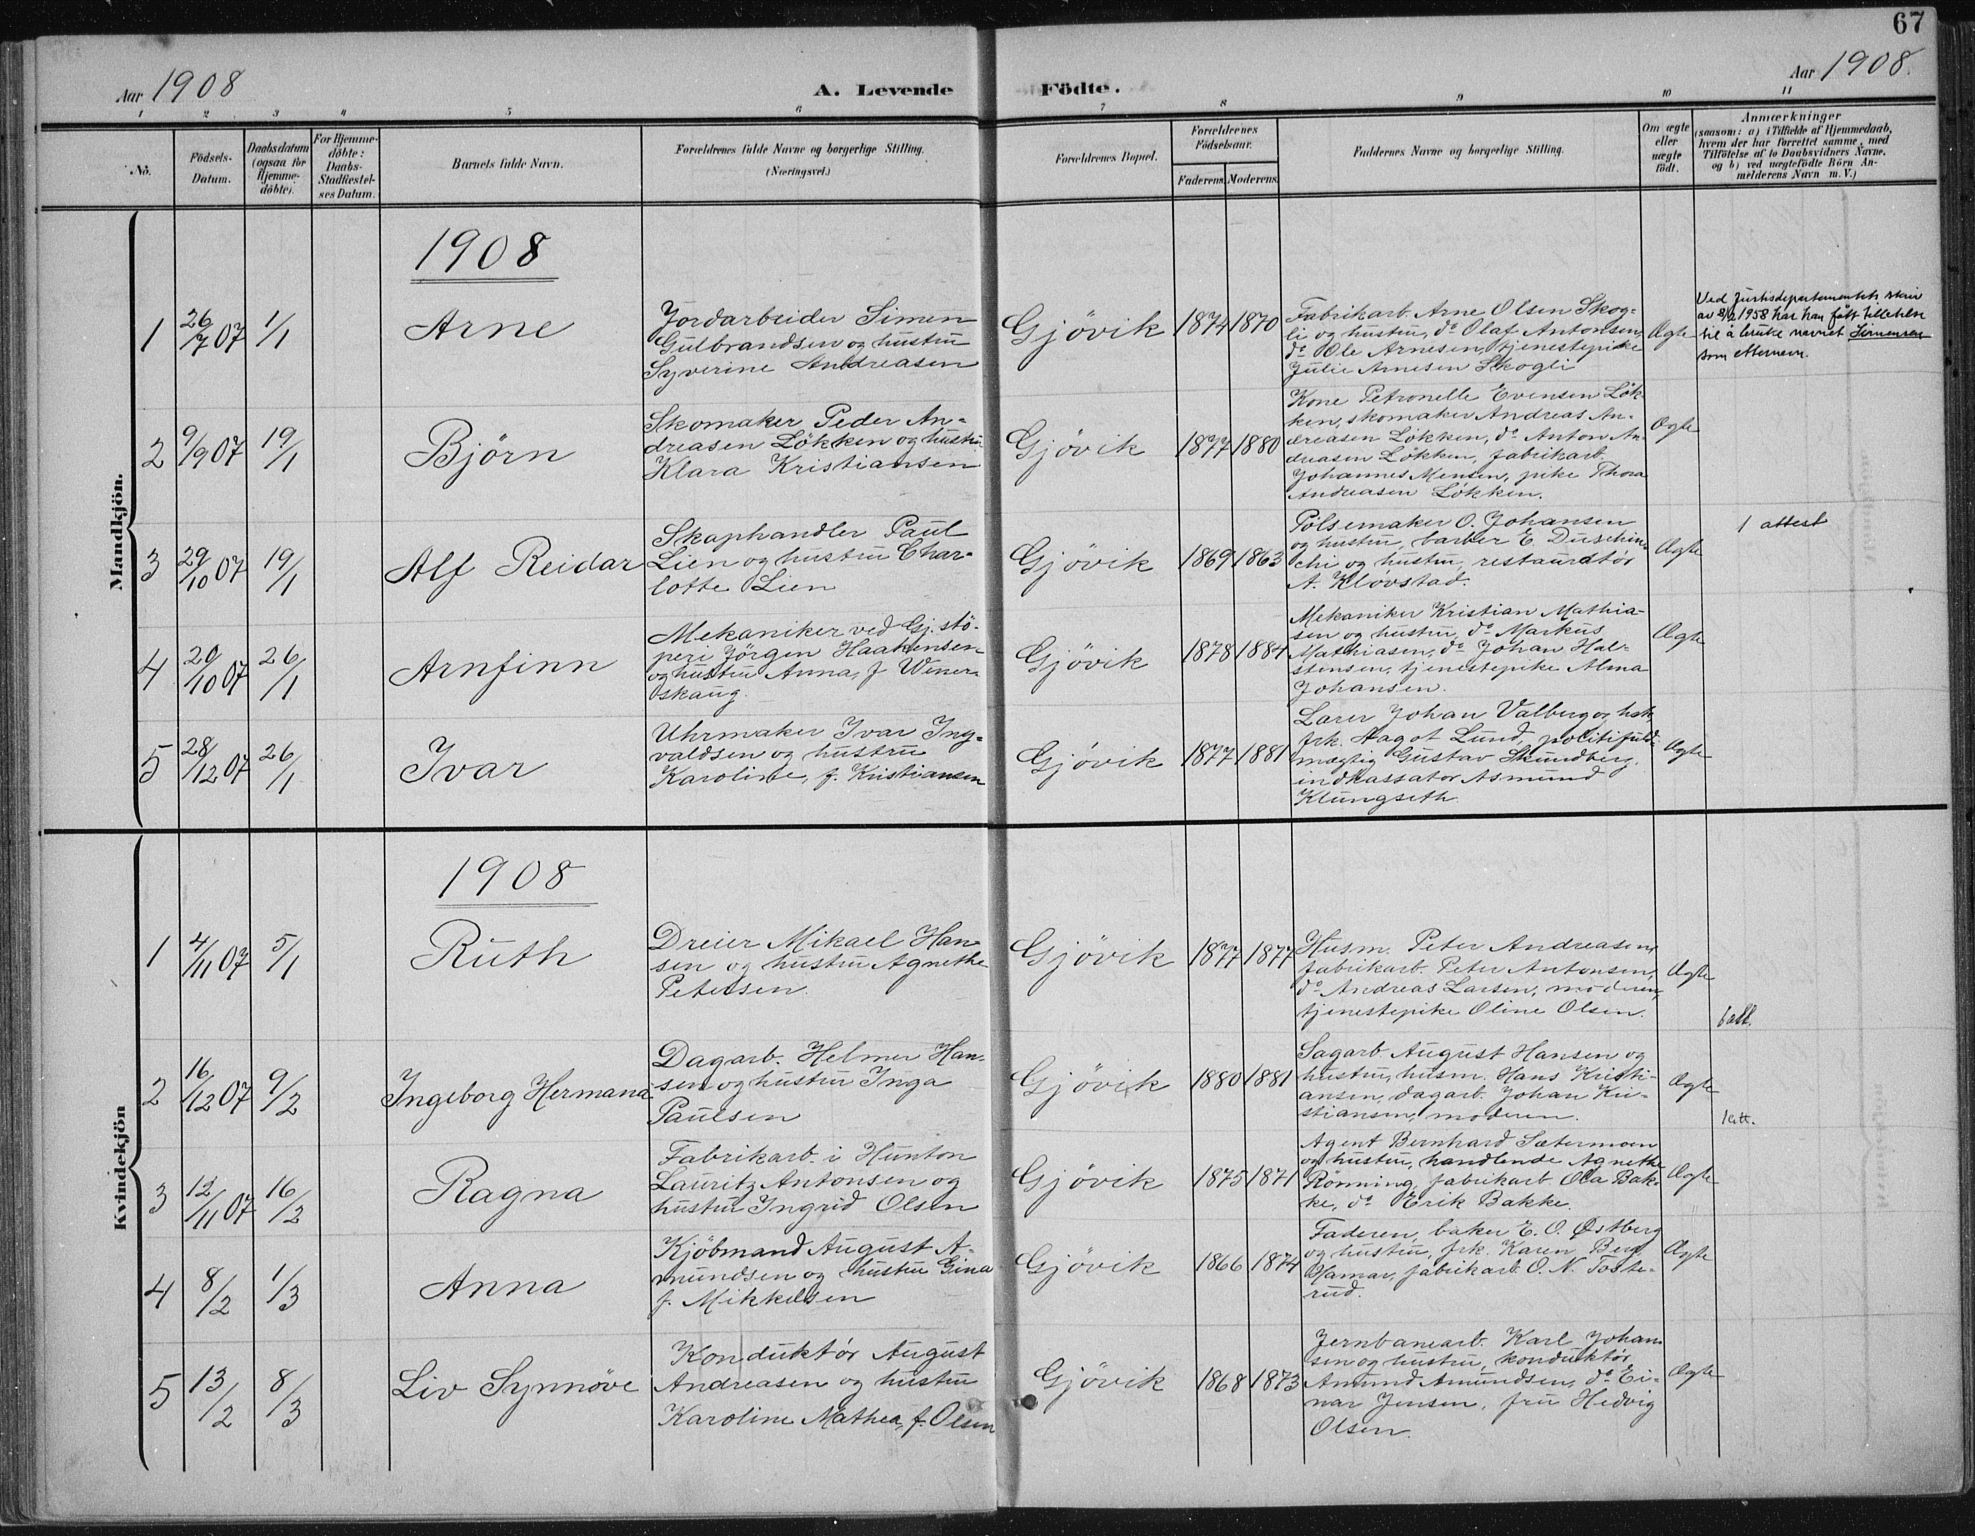 67
Aar 1908
A. Levende Födte.
Aar 1908.
1 2 3 4 5 6 7 8 9 10 11
No.
Födsels-
Datum.
Daabsdatum
(ogsaa for
Hjemme-
döbte).
For Hjemme-
döbte:
Daabs-
Stadfæstel-
ses Datum.
Barnets fulde Navn.
Forældrenes fulde Navne og borgerlige Stilling.
(Næringsvei.)
Forældrenes Bopæl.
Forældrenes
Födselsaar.
Faderens. Moderens.
Faddernes Navne og borgerlige Stilling.
Om ægte
eller
uægte
födt.
Anmærkninger
(saasom: a) i Tilfælde af Hjemmedaab,
hvem der har forrettet samme, med
Tilföielse af to Daabsvidners Navne,
og b) ved uægtefödte Börn An-
melderens Navn m. V.)
Mandkjön.
1908
1 26/7 07 1/1 Arne
Jordarbeider Simen
Gulbrandsen og hustru
Syverine Andreasen
Gjövik 1874 1870
Fabrikarb. Arne Olsen Skog-
li og hustru, do Olaf Antonsen,
do Ole Arnesen, tjenestepike
Julie Arnesen Skogli
Ægte
Ved Justisdepartementets skriv
av 8/2 1958 har han fått tillatelse
til å bruke navnet Simensen
som etternavn.
2 9/9 07 19/1 Björn
Skomaker Peder An-
dreasen Lökken og hustru
Klara Kristiansen
Gjövik 1877 1880
Kone Petronelle Evensen Lök-
ken, skomaker Andreas An-
dreasen Lökken, do Anton An-
dreasen Lökken, fabrikarb.
Johannes Mensen, pike Thora
Andreasen Lökken.
Ægte
3 29/10 07 19/1 Alf Reidar
Skaphandler Paul
Lien og hustru Char-
lotte Lien
Gjövik 1869 1863
Pölsemaker O. Johansen
og hustru, barber E. Duschin-
chi og hustru, restauratör
A. Klövstad.
Ægte
1 attest
4 20/10 07 26/1 Arnfinn
Mekaniker ved Gj. stö-
peri Jörgen Haakensen
og hustru Anna, f. Winer-
skaug.
Gjövik 1878 1884
Mekaniker Kristian Mathia-
sen og hustru, do Markus
Mathiasen, do Johan Hal-
stensen, tjenestepike Alma
Johansen.
Ægte
5 28/12 07 26/1 Ivar
Uhrmaker Ivar Ing-
valdsen og hustru
Karoline, f. Kristiansen
Gjövik 1877 1881
Lærer Johan Valberg og
frk. Aagot Lund, politifuld-
mægtig Gustav Strundberg,
indkassator Asmund
Klungseth.
Ægte
Kvindekjön
1908
1 4/11 07 5/1 Ruth
Dreier Mikael Han-
sen og hustru Agnethe
Petersen.
Gjövik 1877 1877
Husm. Peter Andreasen,
fabrikarb. Peter Antonsen,
do Andreas Larsen, moderen,
tjenestepike Oline Olsen.
Ægte
2 16/12 07 9/2 Ingeborg Hermana
Dagarb. Helmer Han-
sen og hustru Inga
Paulsen
Gjövik 1880 1881
Sagarb August Hansen og
hustru, husm. Hans Kristi-
ansen, dagarb. Johan Kri-
stiansen, moderen.
Ægte
1 att.
3 12/11 07 16/2 Ragna
Fabrikarb. i Hunton
Lauritz Antonsen og
hustru Ingrid Olsen
Gjövik 1875 1871
Agent Bernhard Sætermoen
og hustru, handlende Agnethe
Rönning, fabrikarb Ola Bak-
ke, do Erik Bakke.
Ægte
4 8/2 1/3 Anna
Kjöbmand August A-
mundsen og hustru Gina
f. Mikkelsen
Gjövik 1866 1874
Faderen, baker E. O. Østberg
og hustru, frk. Karen Berg
Hamar, fabrikarb. O. N. Toste-
rud.
Ægte
5 13/2 8/3 Liv Synnöve
Konduktör August
Andreasen og hustru
Karoline Mathea, f. Olsen
Gjövik 1868 1873
Jernbanearb. Karl Johan-
sen og hustru, konduktör
Amund Amundsen, do Ei-
nar Jensen, fru Hedvig
Olsen.
Ægte